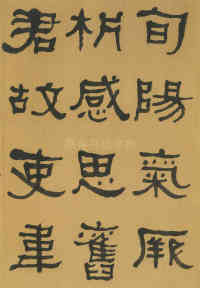 旬陽氣厥
析感思舊
君故吏韋